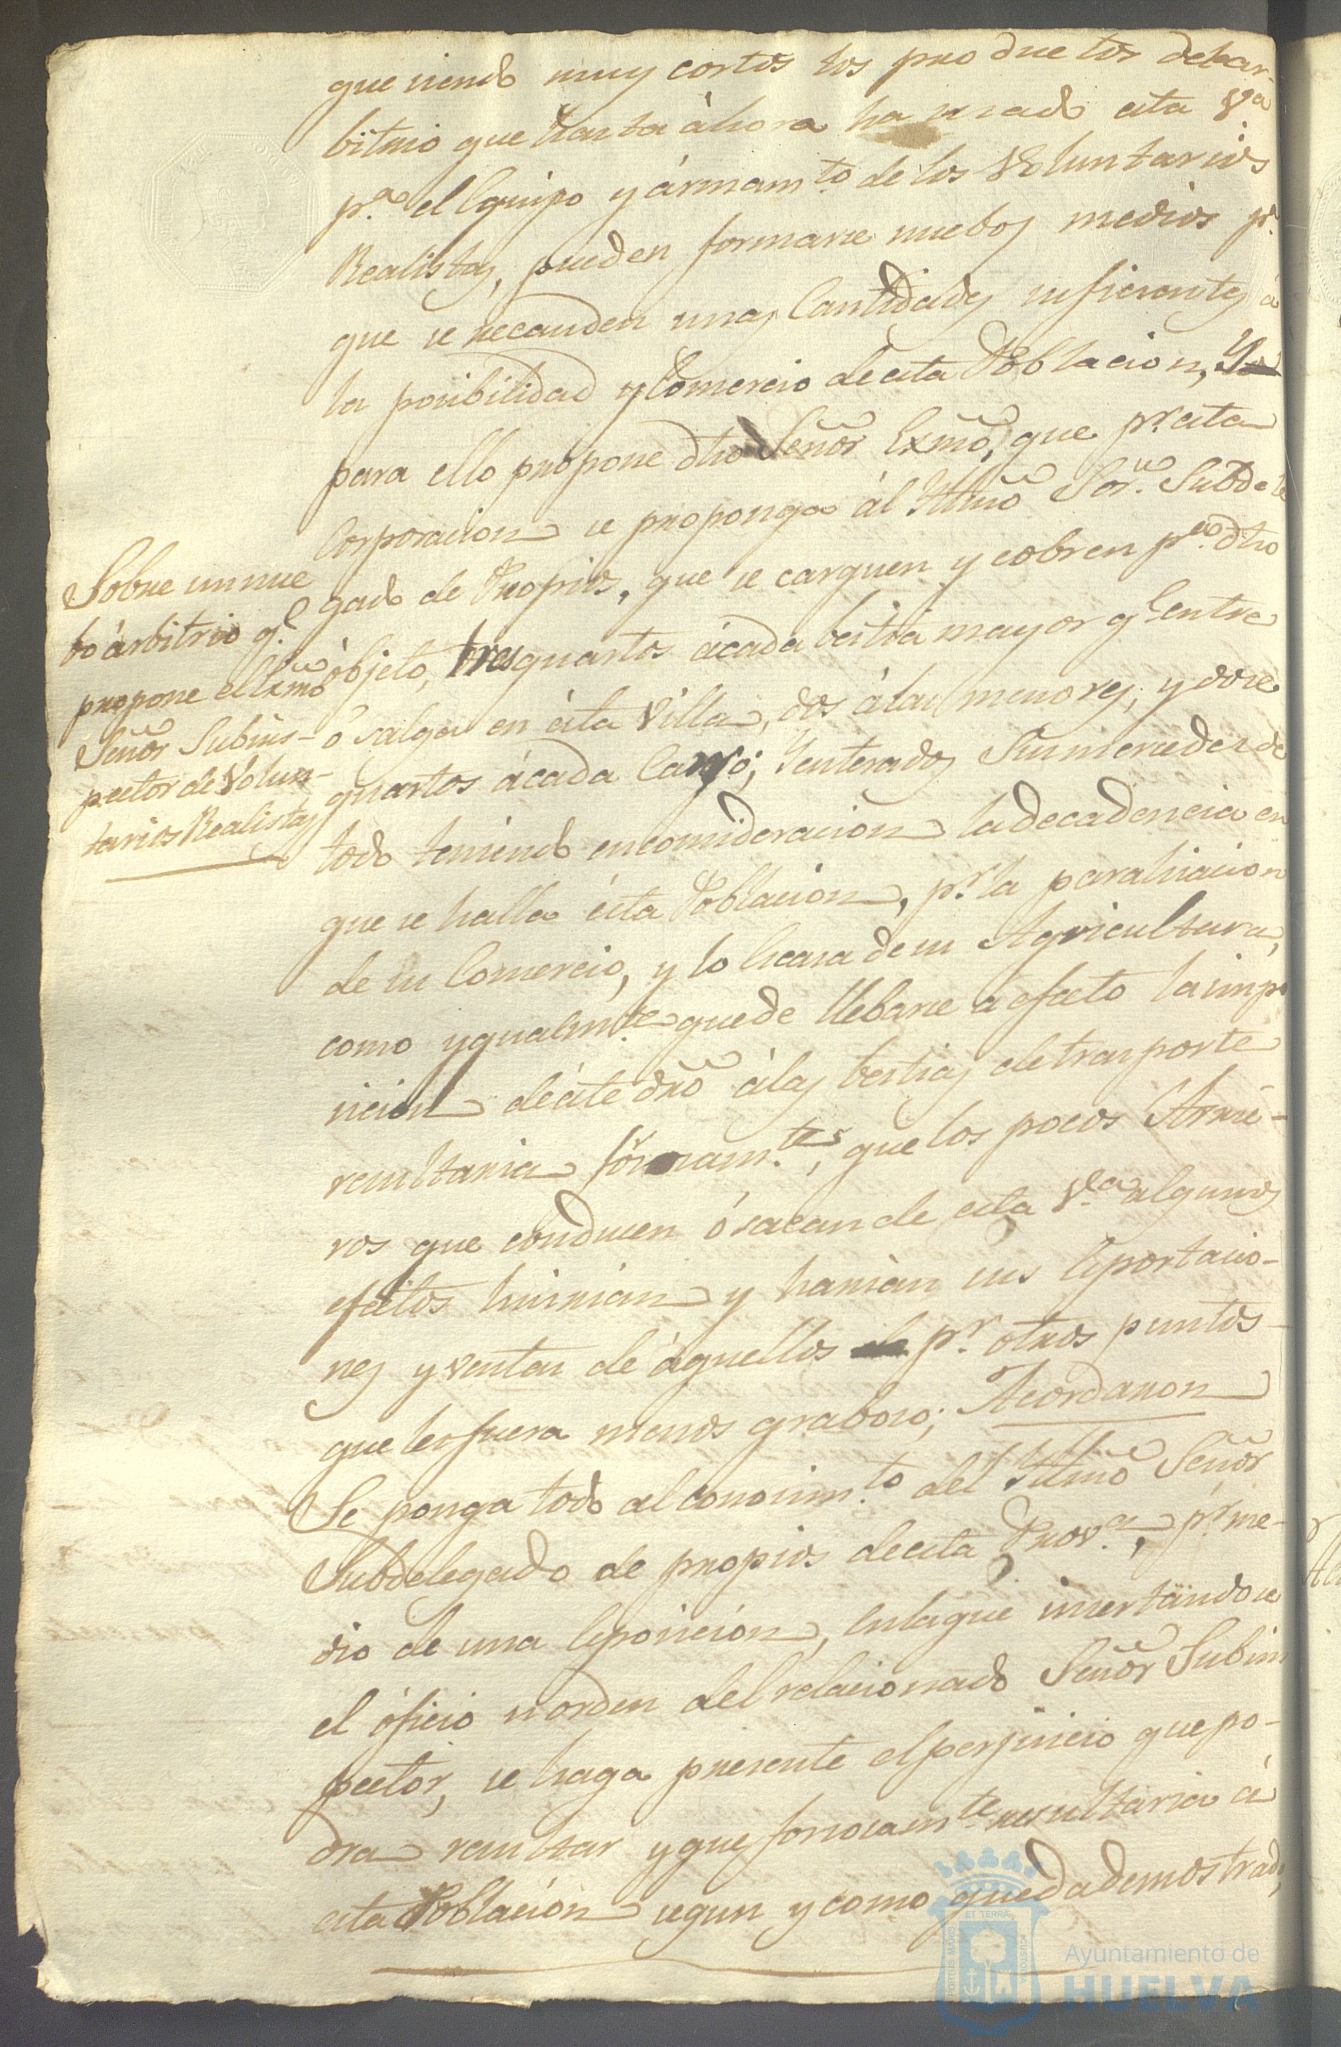 que siendo muy cortos los productos del ar-
bitrio que hasta áhora ha usado esta Vª
p.ª el Equipo y ármam.to de los Voluntarios
Realistas, pueden formarse nuebos medios p.ª
que se recauden unas Cantidades suficientes á
la posibilidad y Comercio de esta Poblacion,
para ello propone dho Señór Exmõ, que pr. esta
Corporacion se proponga ál Illmõ Sor. Subdele
gado de Propios, que se carguen y cobren p.ª dho
óbjeto, tres quartos ácada bestia mayor q.e entre
ó salga en ésta Villa, dos álas menores, y doce
quartos ácada Carro; Y enterados Sus mercedes de
todo teniendo en consideracion la decadencia en
que se halla ésta Poblacion, pr. la paralisacion
de su Comercio, y lo escasa de su Agricultura,
como ygualm.te quede llebarse a efecto la impo
sicion de éste dro álas bestias de trasporte
resultaria forsosam.te, que los pocos Arrie-
ros que conducen ó sacan de esta V.ª algunos
efectos huirian y harian sus Esportacio-
nes y ventas de áquellos pr. otros puntos
que les fuera menos graboso; Acordaron
Se ponga todo al conosim.to del Illmõ Señór
Subdelegado de propios de esta Prov.ª, pr. me-
dio de una Esposicion, en la que insertandose
el óficio u orden del relacionado Señór Subins
pector, se haga presente el perjuicio que po-
dra resultar y que forsosam.te resultaria á
esta Poblacion segun y como queda demostrado,
Sobre un nue
bo árbitrio q.e
propone el Exmõ
Señór Subins-
pector de Volun-
tarios Realistas
Ayuntamiento de
HUELVA